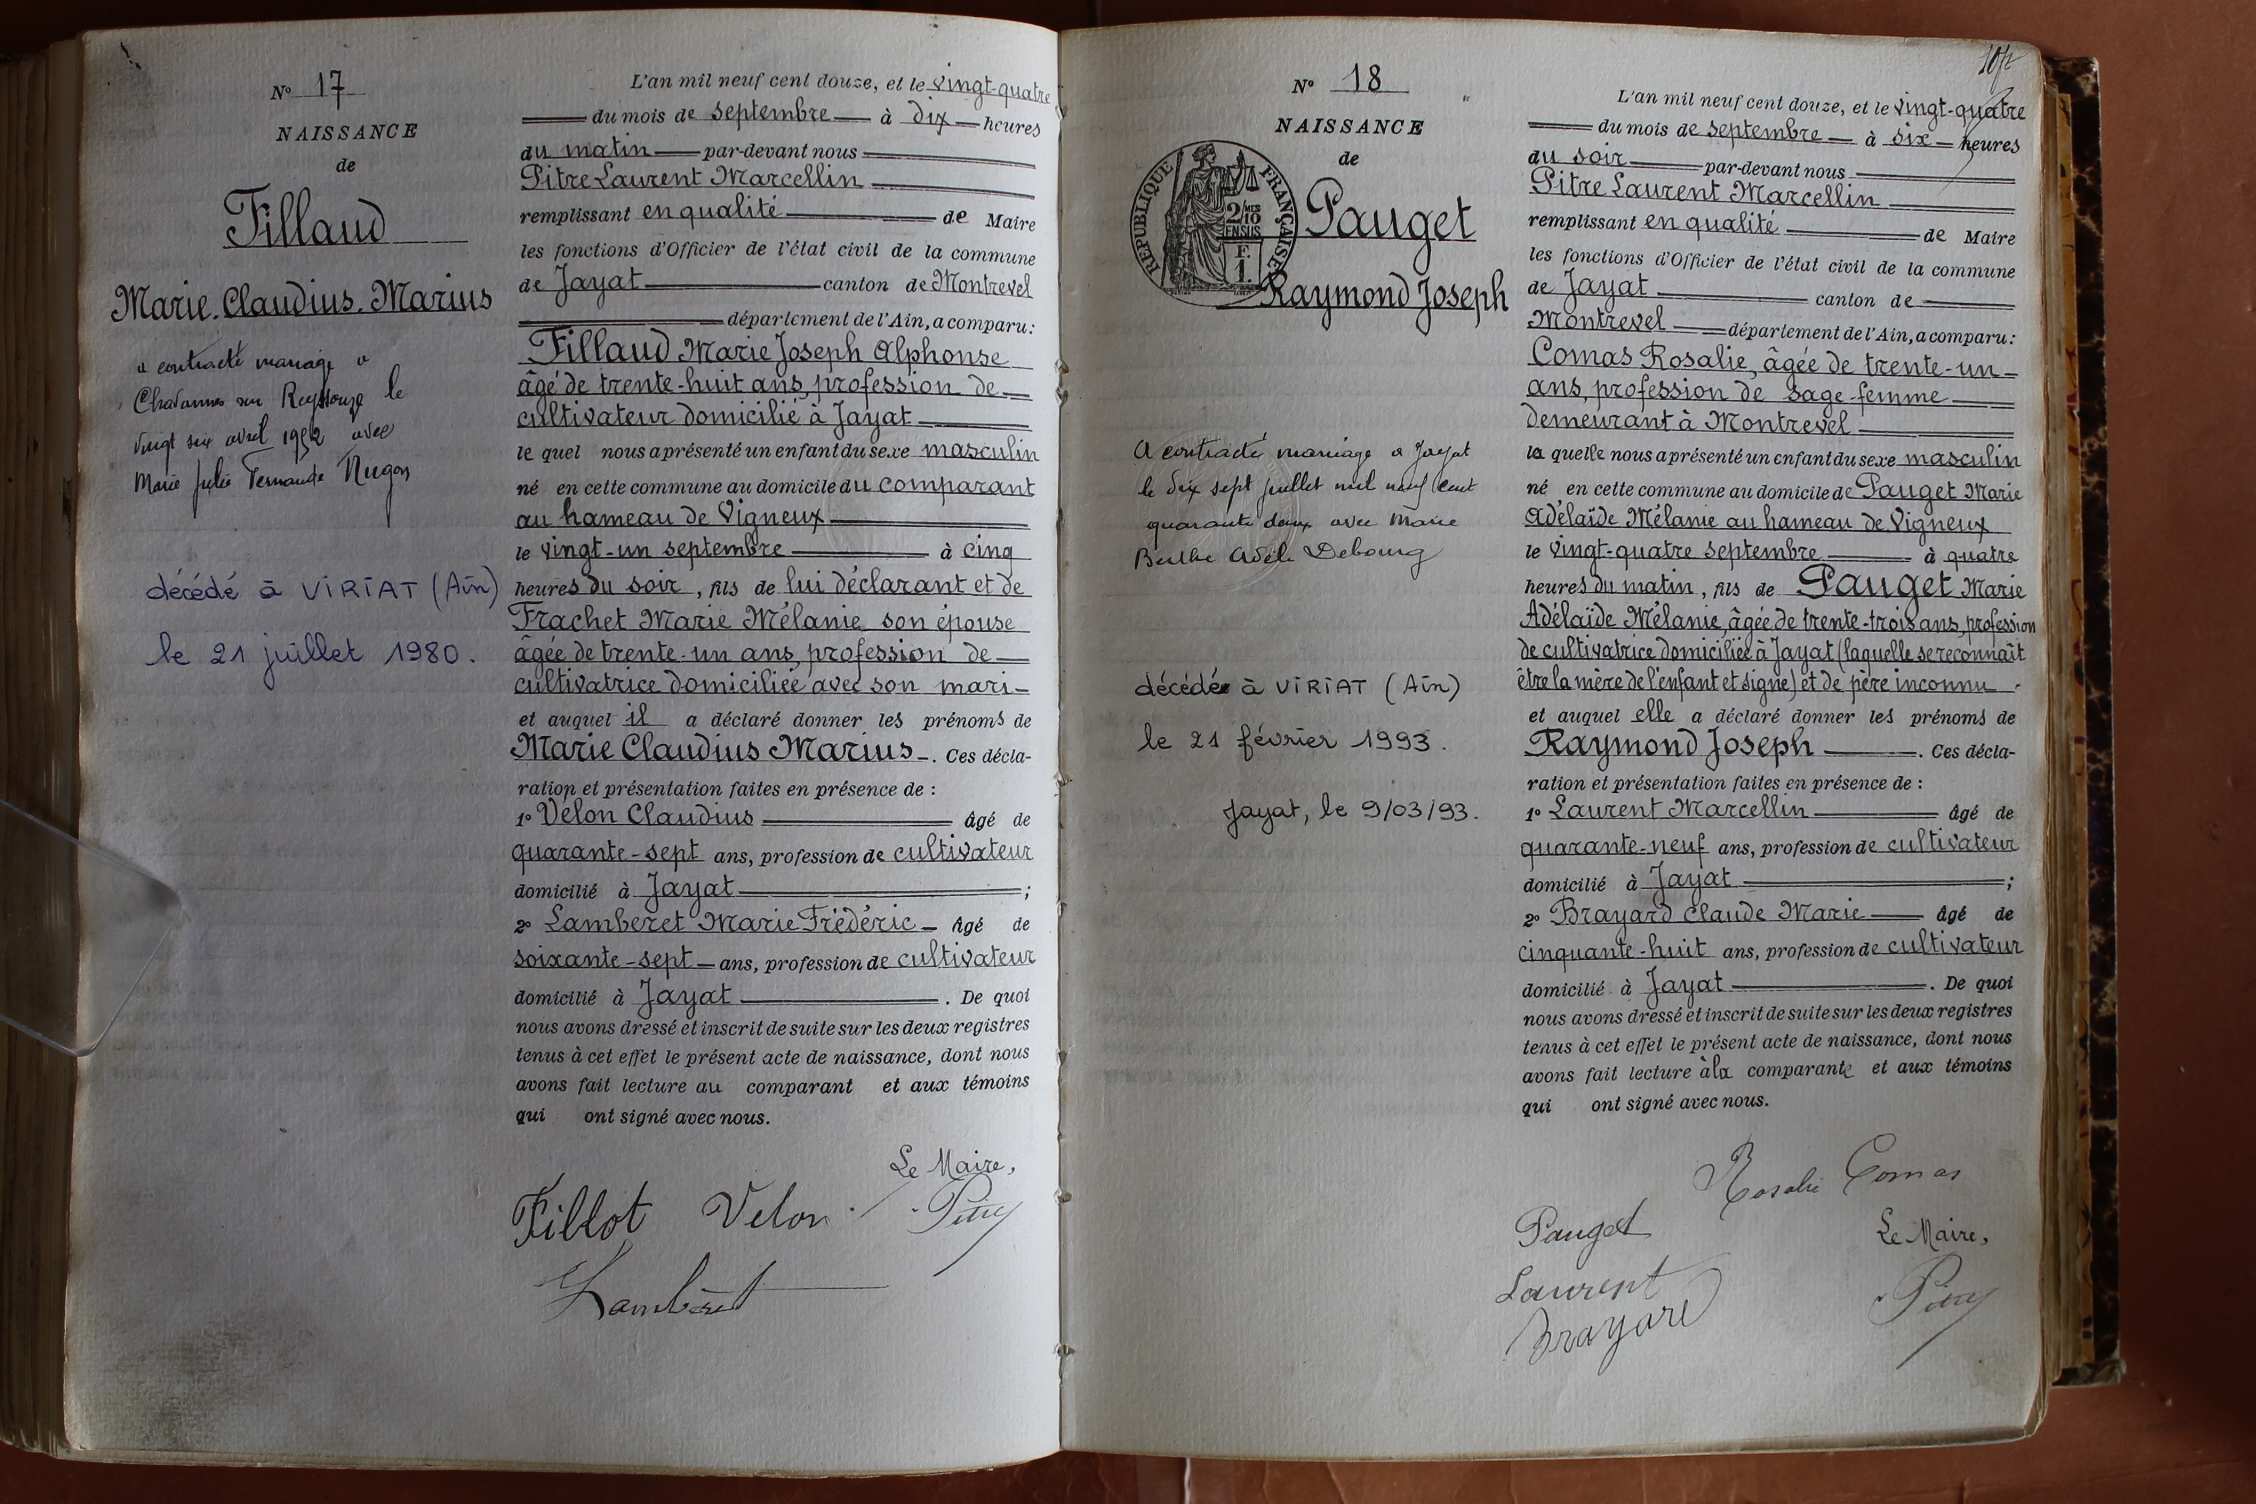 N° 17
NAISSANCE
de
Fillaud
Marie.Claudius.Marius
a contracté mariage a
Chavannes sur Reyssouze le
vingt six avril 1952 avec
Marie Julie Fernande Nugon
décédé à VIRIAT (Ain)
le 21 juillet 1980.
L'an mil neuf cent douze, et le vingt-quatre
du mois de septembre à dix heures
du matin par-devant nous
Pitre Laurent Marcellin
remplissant en qualité de Maire
les fonctions d'Officier de l'état civil de la commune
de Jayat canton de Montrevel
département de l'Ain, a comparu:
Fillaud Marie Joseph Alphonse
âgé de trente-huit ans, profession de
cultivateur domicilié à Jayat
le quel nous a présenté un enfant du sexe masculin
né en cette commune au domicile du comparant
au hameau de Vigneux
le vingt-un septembre à cinq
heures du soir, fils de lui déclarant et de
Frachet Marie Mélanie son épouse
âgée de trente-un ans, profession de
cultivatrice domiciliée avec son mari
et auquel il a déclaré donner les prénoms de
Marie Claudius Marius. Ces décla-
ration et présentation faites en présence de :
1° Velon Claudius âgé de
quarante-sept ans, profession de cultivateur
domicilié à Jayat ;
2° Lamberet Marie Frédéric âgé de
soixante-sept ans, profession de cultivateur
domicilié à Jayat . De quoi
nous avons dressé et inscrit de suite sur les deux registres
tenus à cet effet le présent acte de naissance, dont nous
avons fait lecture au comparant et aux témoins
qui ont signé avec nous.
Le Maire,
Fillot Velon Pitre
Lamberet
10/12
N° 18
NAISSANCE
de
REPUBLIQUE FRANÇAISE
2/10 MES
EN SUS
F.
1.
Pauget
Raymond Joseph
A contracté mariage a Jayat
le dix sept juillet mil neuf cent
quarante deux avec Marie
Berthe Adèle Debourg
décédé à VIRIAT (Ain)
le 21 février 1993.
Jayat, le 9/03/93.
L'an mil neuf cent douze, et le vingt-quatre
du mois de septembre à six heures
du soir par-devant nous
Pitre Laurent Marcellin
remplissant en qualité de Maire
les fonctions d'Officier de l'état civil de la commune
de Jayat canton de
Montrevel département de l'Ain, a comparu:
Comas Rosalie, âgée de trente-un
ans, profession de sage-femme
demeurant à Montrevel
la quelle nous a présenté un enfant du sexe masculin
né en cette commune au domicile de Pauget Marie
Adélaïde Mélanie au hameau de Vigneux
le vingt-quatre septembre à quatre
heures du matin, fils de Pauget Marie
Adélaïde Mélanie, âgée de trente-trois ans, profession
de cultivatrice domiciliée à Jayat (laquelle se reconnaît
être la mère de l'enfant et signe) et de père inconnu
et auquel elle a déclaré donner les prénoms de
Raymond Joseph . Ces décla-
ration et présentation faites en présence de :
1° Laurent Marcellin âgé de
quarante-neuf ans, profession de cultivateur
domicilié à Jayat ;
2° Brayard Claude Marie âgé de
cinquante-huit ans, profession de cultivateur
domicilié à Jayat . De quoi
nous avons dressé et inscrit de suite sur les deux registres
tenus à cet effet le présent acte de naissance, dont nous
avons fait lecture à la comparante et aux témoins
qui ont signé avec nous.
Rosalie Comas
Pauget Le Maire,
Laurent Pitre
Brayard